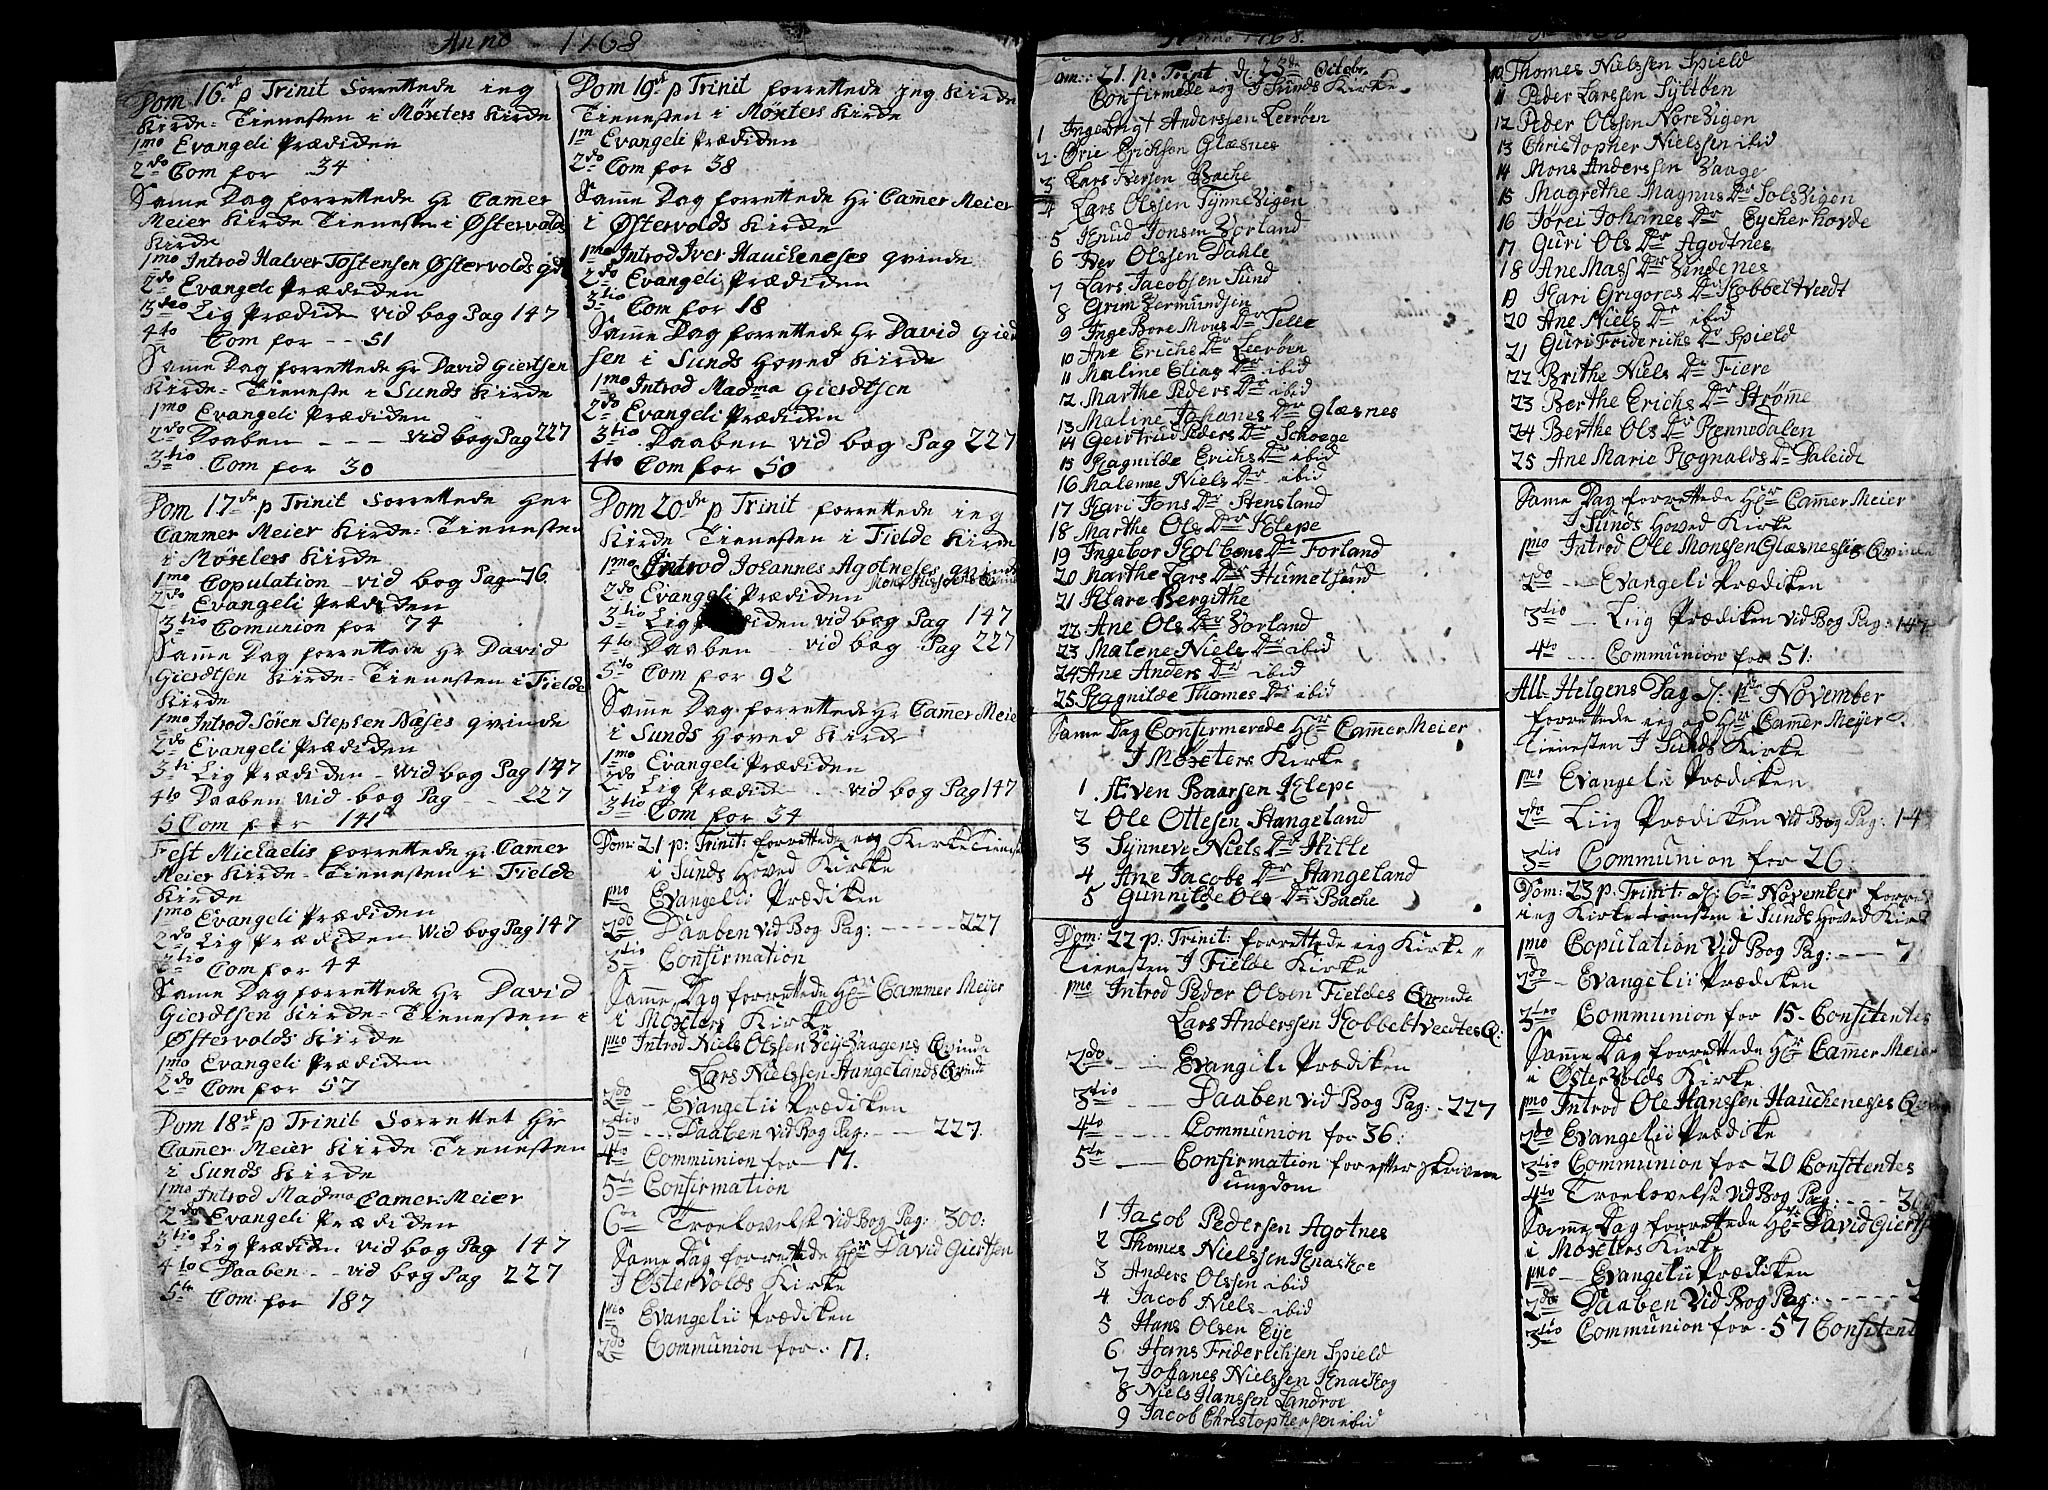 Anno 1768
Dom 16de p Trinit Forrettede ieg
Kirke-Tienesten i Møxters Kirke
1mo Evangeli Prædiken
2do Com for 34
Samme Dag forrettede Hr Cammer
Meier Kirke Tienesten i Østervolds
Kirke
1mo Introd Halver Tostensen Østervolds
2do Evangeli Prædiken
3tio Lig Prædiken vid bog Pag 147
4to Com for -- 51
Samme Dag forrettede Hr David Giertsen
Kirke-Tieneste i Sunds Kirke
1mo Evangeli Prædiken
2do Daaben --- vid bog Pag 227
3tio Com for 30
Dom 17de p Trinit Forrettede Her
Cammer Meier Kirke-Tienesten
i Møxters Kirke
1mo Copulation - vid bog Pag 76
2do Evangeli Prædiken
3tio Comunion for 74
Samme Dag forrettede Hr David
Gierdtsen Kirke-Tienesten i Fielde
Kirke
1mo Introd Sören Stephen Næses qvinde
2do Evangeli Prædiken
3ti Lig Prædiken - Wid bog Pag 147
4to Daaben vid bog Pag -- 227
5 Com for 141
Fest Michaelis forrettede Hr Camer
Meier Kirke-Tienesten i Fielde
Kirke
1mo Evangeli Prædiken
2do Lig Prædiken Wid bog Pag 147
3tio Com for 44
Samme Dag forrettede Hr David
Gierdtsen Kirke-Tienesten i
Østervolds Kirke
1mo Evangeli Prædiken
2do Com for 57
Dom 18de p Trinit Forrettet Hr
Camer Meier Kirke Tienesten
i Sunds Kirke
1mo Introd Madma Camer-Meier
2do Evangeli Prædiken
3tio Lig Prædiken vid bog Pag 147
4to Daaben -- vid bog Pag 227
5te Com for 187
Dom 19de p Trinit forrettede jeg Kirke
Tienesten i Møxters Kirke
1m Evangeli Prædiken
2do Com for 38
Samme Dag forrettede Hr Cammer Meier
i Østervolds Kirke
1mo Introd Iver Haucheneses qvinde
2do Evangeli Prædiken
3tio Com for 18
Samme Dag forrettede Hr David Gierd
sen i Sunds Hoved Kirke
1mo Introd Madma Gierdtsen
2do Evangeli Prædiken
3tio Daaben vid bog Pag 227
4to Com for 50
Dom 20de p Trinit forrettede ieg
Kirke Tienesten i Fielde Kirke
1mo Introd Johannes Agotneses qvinde
2do Evangeli Prædiken
3tio Lig Prædiken vid bog Pag 147
4to Daaben -- vid bog Pag 227
5to Com for 92
Samme Dag forrettede Hr Cammer Meie
i Sunds Hoved Kirke
1mo Evangeli Prædiken
2do Lig Prædike -- vid bog Pag 147
3tio Com for 34
Dom: 21 p: Trinit: forrettede ieg Kirke Tienest
i Sunds Hoved Kirke
1mo Evangelii Prædiken
2do Daaben vid Bog Pag: ----- 227
3tio Confirmation
Samme Dag forrettede Hr Cammer Meijer
i Moxters Kirke
1mo Introd Niels Olssen Veivaagens Qvinde
Lars Nielssen Stangelands Qvinde
2do - Evangelii Prædiken
3tio --- Daaben vid Bog Pag: --- 227.
4to Communion for 17.
5te Confirmation
6te Troelovelse vid Bog Pag: 300:
Samme Dag forrettede Hr David Giertsen
I Østervolds Kirke
1mo Evangelii Prædiken
2do Communion for: 17:
Anno 1768.
Dom: 21. p: Trint d: 23de Octobr.
Confirmede ieg I Sunds Kirke
1 Ingebrigt Anderssen Leeröen
2 Örie Erichsen Glæsnes
3 Lars Iversen Bache
4 Lars Olssen Tynnevigen
5 Knud Jonsen Vorland
6 Iver Olssen Dahle
7 Lars Jacobsen Sund
8 Grim Vermundsen
9 Inge Bore Mons Dr Telle
10 Ane Erichs Dr Leeröen
11 Maline Elias Dr ibid
12 Marthe Peders Dr ibid
13 Maline Johanes Dr Glæsnes
14 Geirtrud Peders Dr Schoege
15 Ragnilde Erichs Dr ibid
16 Malene Niels Dr ibid
17 Kari Jons Dr Stensland
18 Marthe Ols Dr Klepe
19 Ingebor Kolbens Dr Forland
20 Marthe Lars Dr Humelsund
21 Klare Bergithe
22 Ane Ols Dr Vorland
23 Malene Niels Dr ibid
24 Ane Anders Dr ibid
25 Ragnilde Thomes Dr ibid
Same Dag Confirmerede Hr Cammer Meier
I Moxters Kirke
1 Sven Baarsen Klepe
2 Ole Ottesen Stangeland
3 Synneve Niels Dr Hille
4 Ane Jacobs Dr Stangeland
5 Gunnilde Ols Dr Bache
Dom: 22 p: Trinit: forrettede ieg Kirke
Tienesten I Fielde Kirke
1mo Introd Peder Olsen Fieldes Qvinde
Lars Anderssen Kobbeltvedtes Q:
2do -- Evangili Prædiken
3tio --- Daaben vid Bog Pag: - 227
4to ---- Communion for 36:
5te -- Confirmation for efter skrivene
ungdom
1 Jacob Pedersen Agotnes
2 Thomes Nielssen Knaskoe
3 Anders Olssen ibid
4 Jacob Niels - ibid
5 Hans Olsen Eije
6 Hans Friderichsen Spield
7 Johanes Nielssen Knaskog
8 Niels Hanssen Landroe
9 Jacob Christophersen ibid
10 Thomes Nielssen Spield
11 Peder Larssen Syltöen
12 Peder Olssen Nore Vigen
13 Christopher Nielssen ibid
14 Mons Anderssen Vaage
15 Magrethe Magnus Dr Solsvigen
16 Jörei Johanes Dr Eycherhovde
17 Guri Ols Dr Agodtnes
18 Ane Mass Dr Vindenes
19 Kari Grigores Dr Kobbeltvedt
20 Ane Niels Dr ibid
21 Guri Friderichs Dr Spield
22 Brithe Niels Dr Fiere
23 Berthe Erichs Dr Strømme
24 Berthe Ols Dr Rennedalen
25 Ane Marie Rognalds Dr
Same Dag forrettede Hr Cammer Meier
I Sunds Hoved Kirke
1mo Introd Ole Monssen Glæsnessis Qvinde
2do -- Evangelii Prædiken
3tio -- Liig Prædiken vid Bog Pag: 147
4to --- Communion for 51:
All-Helgens Dag d: 1te November
forrettede ieg og Hr Camer Meijer
Tienesten I Sunds Kirke
1mo Evangelii Prædiken
2do Liig Prædiken vid Bog Pag: 14
3tio Communion for 26:
Dom: 23 p. Trinit: d: 6te November forret
ieg Kirketienesten i Sunds Hoved Kirk
1mo Copulation vid Bog Pag: -- 7
2do - Evangelii Prædiken
3tio Communion for 15 - Confitentes
Samme Dag forrettede Hr Cammer Meier
i Østervolds Kirke
1mo Introd Ole Hanssen Hauchenesses
2do Evangelii Prædike
3tio Communion for 20 Confitentes
4to Troelovelse vid Bog Pag: --- 30
Samme Dag forrettede Hr David Gierts
i Moxters Kirke
1mo -- Evangelii Prædiken
2do Daaben vid Bog Pag: -----
3tio Communion for - 57 Confitent